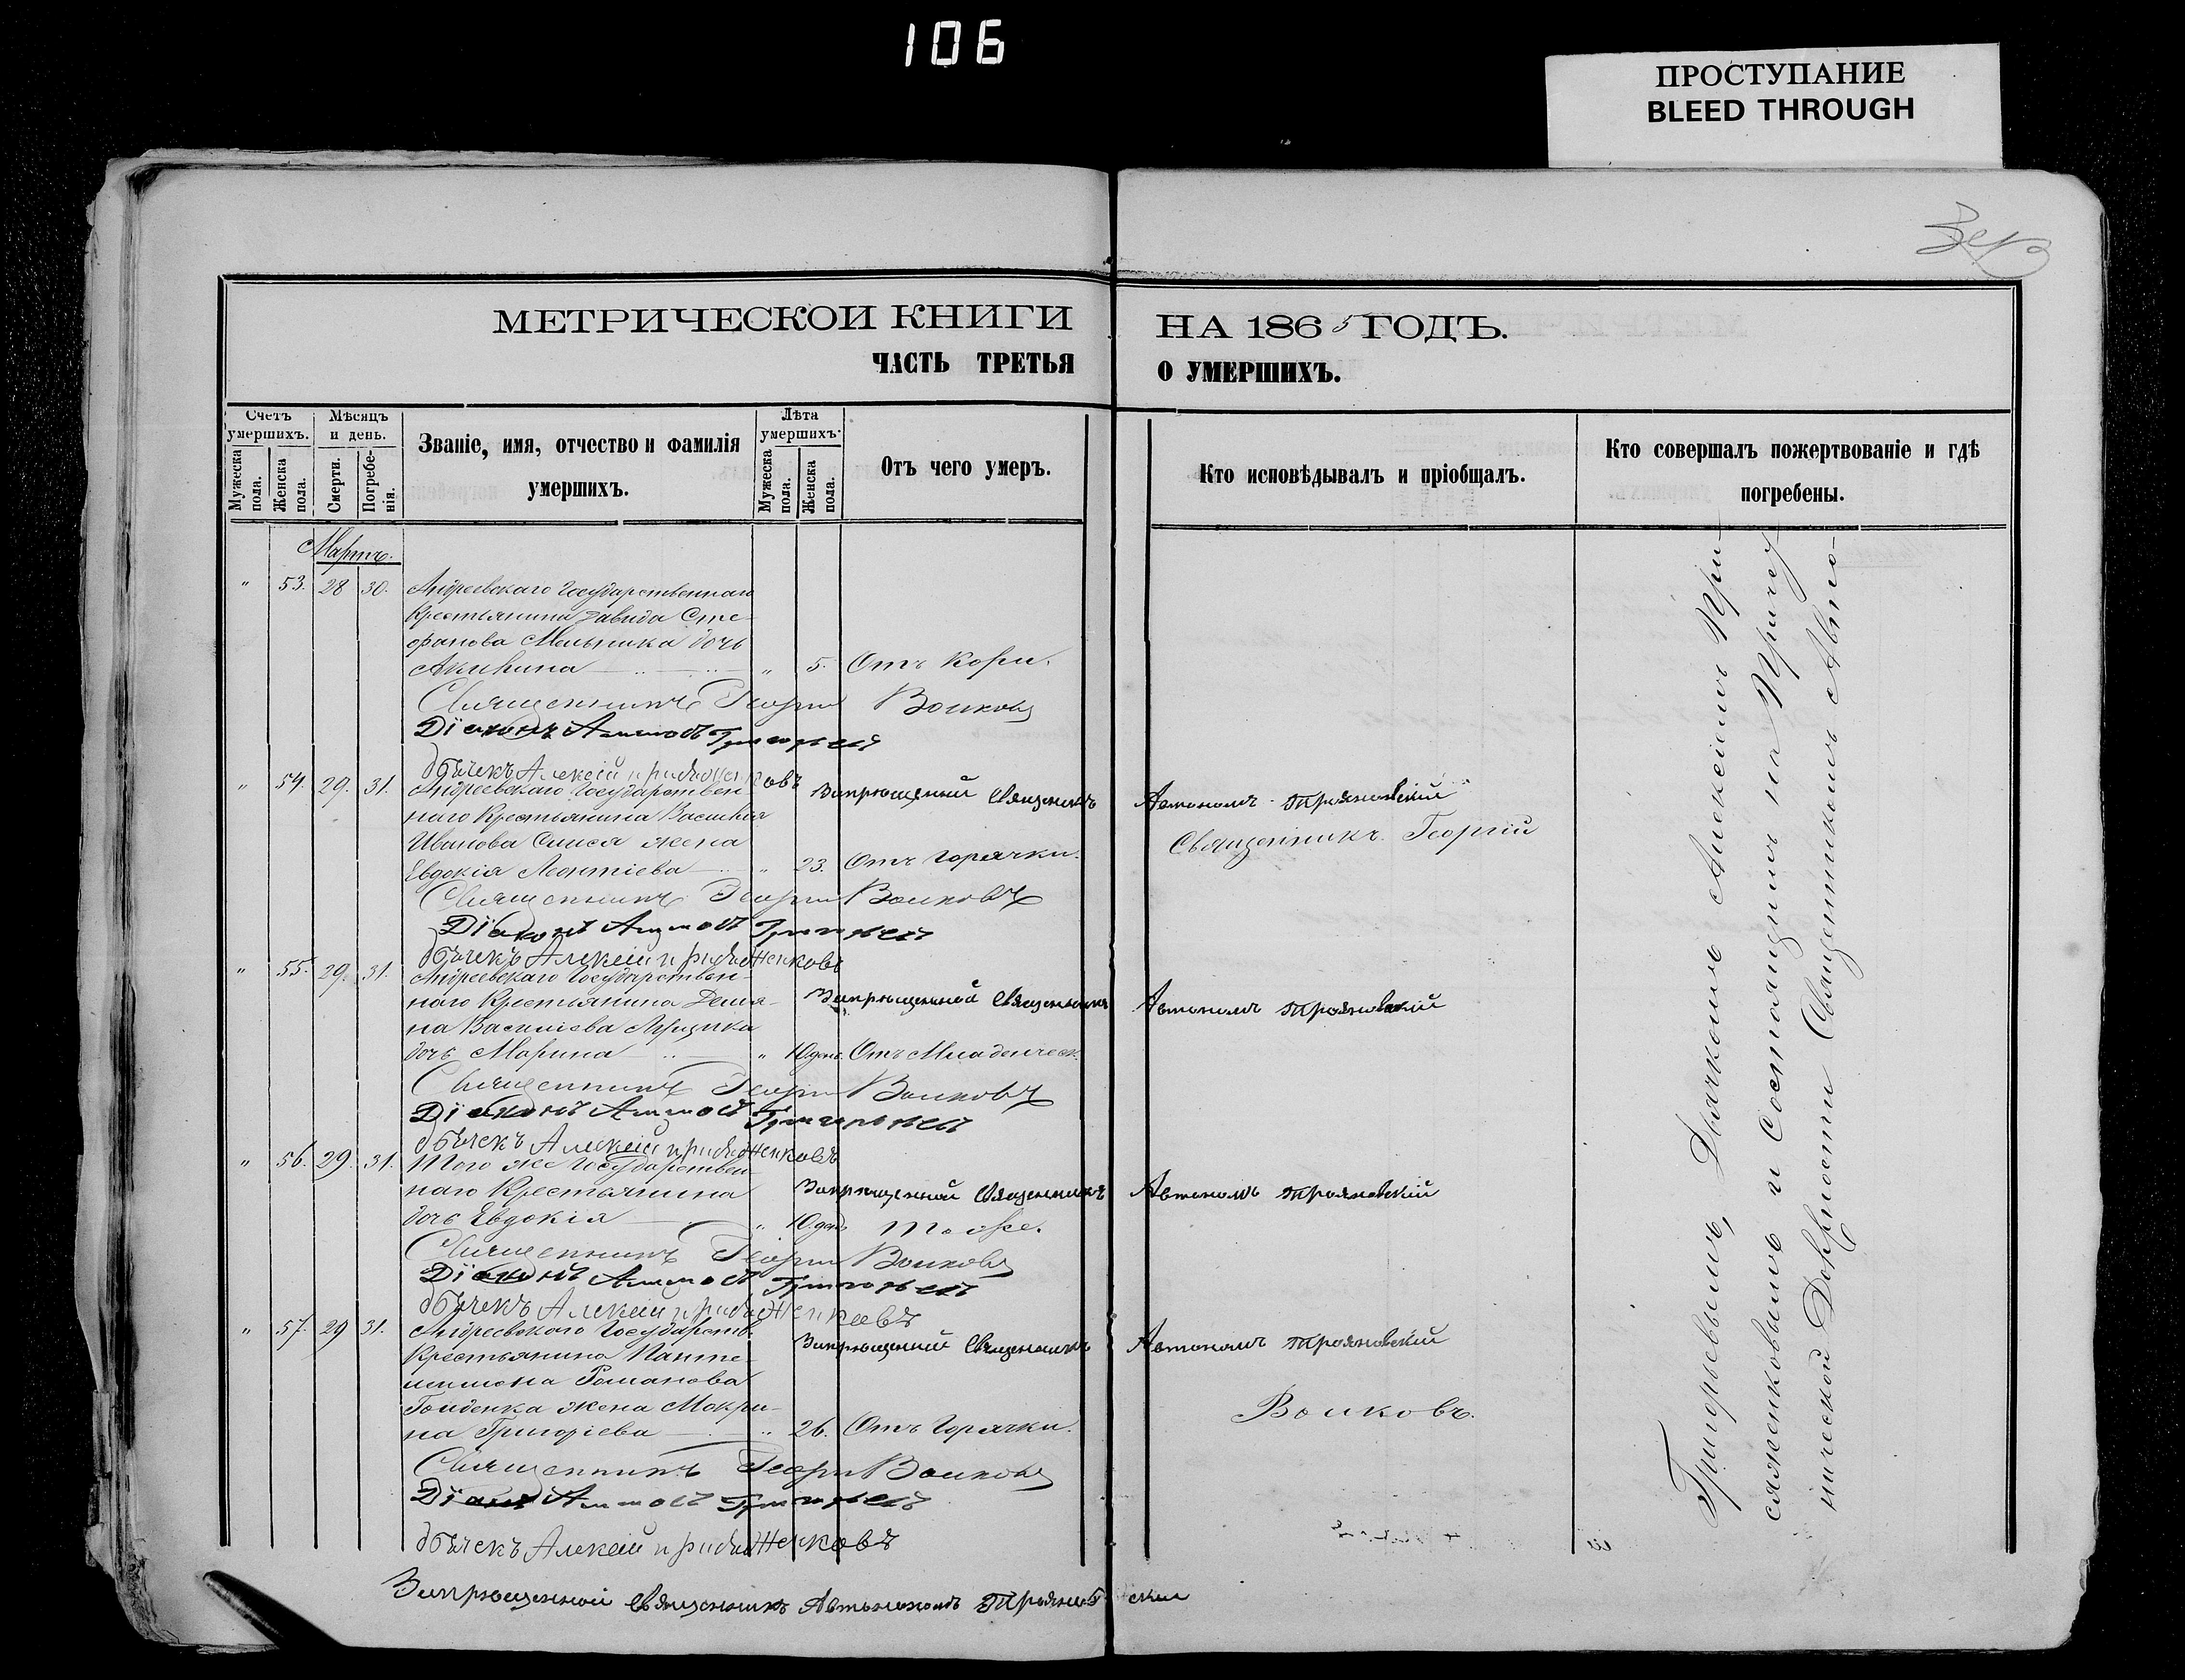 106
ПРОСТУПАНИЕ
BLEED THROUGH
МЕТРИЧЕСКОЙ КНИГИ НА 1865 ГОДЪ.
ЧАСТЬ ТРЕТЬЯ О УМЕРШИХЪ.
Счетъ умершихъ.
Мужеска пола.
Женска пола.
Мѣсяцъ и день.
Смерти.
Погребенія.
Званіе, имя, отчество и фамилія
умершихъ.
Лѣта умершихъ.
Мужеска пола.
Женска пола.
Отъ чего умеръ.
Кто исповѣдывалъ и пріобщалъ.
Кто совершалъ пожертвованіе и гдѣ
погребены.
Мартъ.
" 53. 28 30. Андреевскаго Государственнаго
Крестьянина Давида Сте-
фанова Мельника дочь
Акилина " 5. Отъ Кори.
Священникъ Георгій Волковъ
Діаконъ Григорьевъ
Дьячекъ Алексій
" 54. 29. 31. Андреевскаго Государствен-
наго Крестьянина Василія
Иванова жена
Евдокія Леонтіева " 23. Отъ Горячки.
Запрещенный Священникъ Автономъ Трояновскій
Священникъ Георгій
Священникъ Георгій Волковъ
Діаконъ Григорьевъ
Дьячекъ Алексій
" 55. 29. 31. Андреевскаго Государствен-
наго Крестьянина Демья-
на Василіева
дочь Марина " 10 дней Отъ Младенческ.
Запрещенной Священникъ Автономъ Трояновскій
Священникъ Георгій Волковъ
Діаконъ Григорьевъ
Дьячекъ Алексій
" 56. 29. 31. Того же Государствен-
наго Крестьянина
дочь Евдокія " 10 дней Тоже.
Запрещенной Священникъ Автономъ Трояновскій
Священникъ Георгій Волковъ
Діаконъ Григорьевъ
Дьячекъ Алексій
" 57. 29 31. Андреевскаго Государств.
Крестьянина Панте-
лимона Романова
жена Макри-
на Григоріева " 26. Отъ Горячки.
Запрещенный Священникъ Автономъ Трояновскій
Волковъ.
Священникъ Георгій Волковъ
Діаконъ Григорьевъ
Дьячекъ Алексій
Запрещенной Священникъ Автономъ Трояновскій
Григорьевымъ, Дьячкомъ Алексіемъ При-
сяженковымъ и Состоящимъ на Причет-
нической Должности Священникомъ Авто-